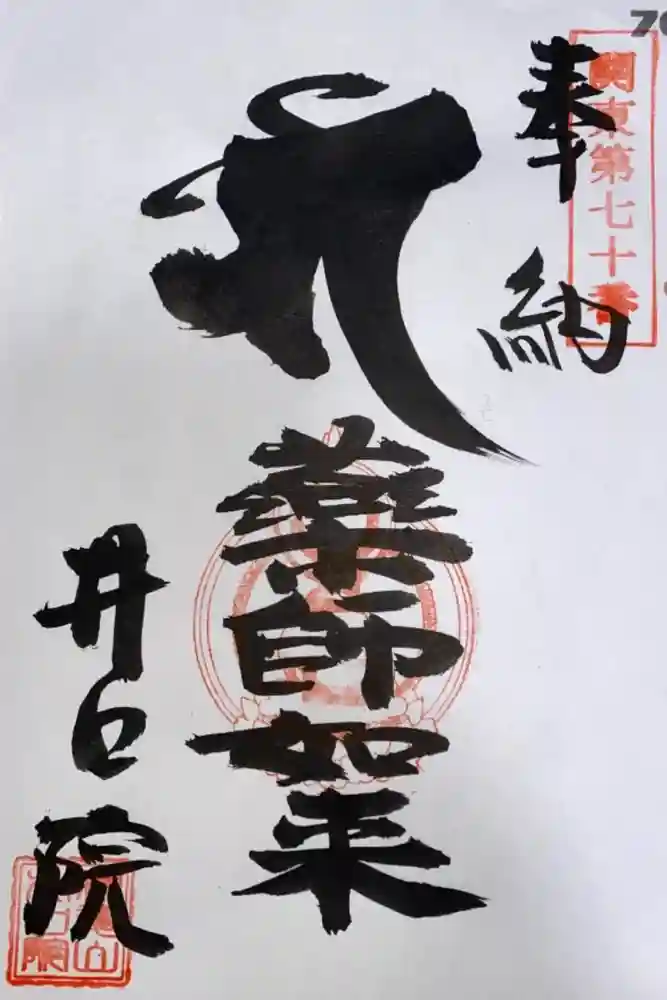 70
關東第七十番
奉納
薬師如来
井口院